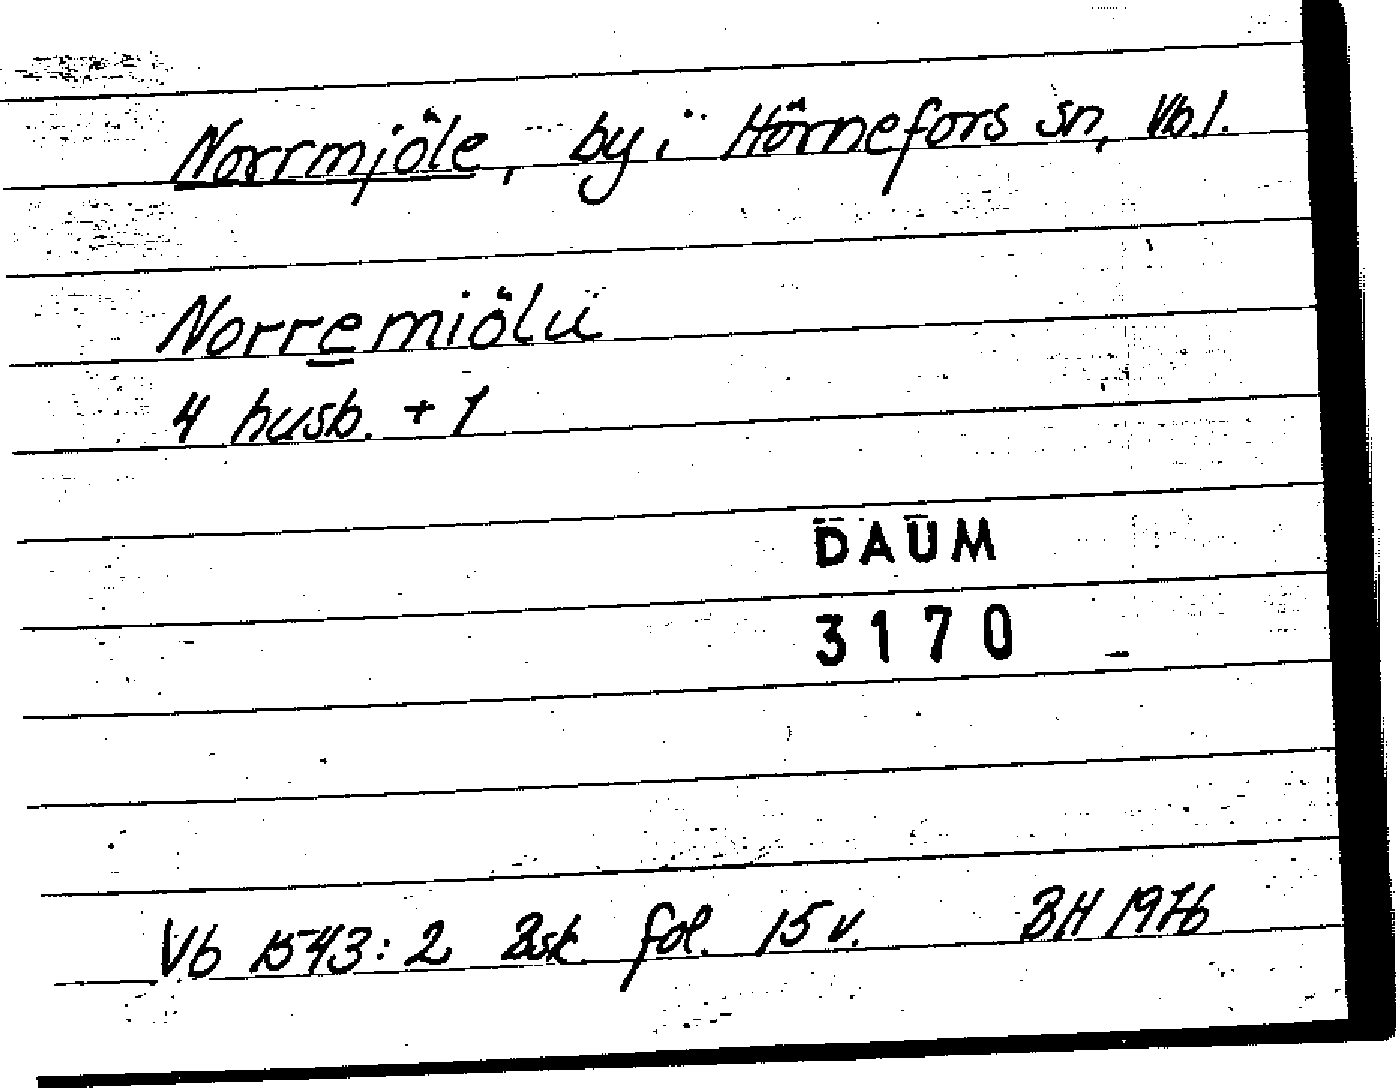 Norrmjöle, by i Hörnefors sn, Vb.l.
Norremiölü
4 husb. + 1
DAUM
3170
Vb 1543:2 Bsk fol. 15 v. BH 1976